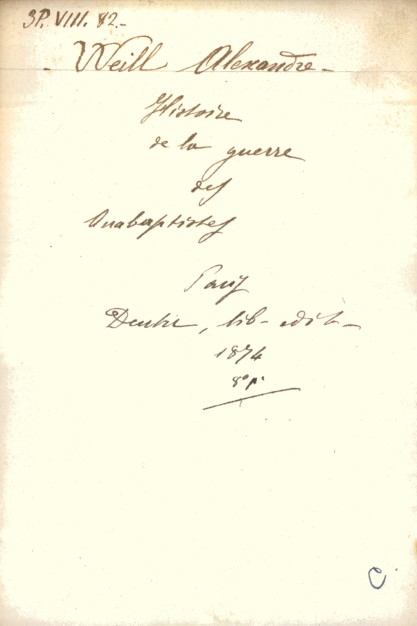 SP. VIII. 82.-
- Weill Alexandre -
Histoire
de la guerre
des
Anabaptistes
Paris
Dentu, lib- édit-
1874
8º p.
C